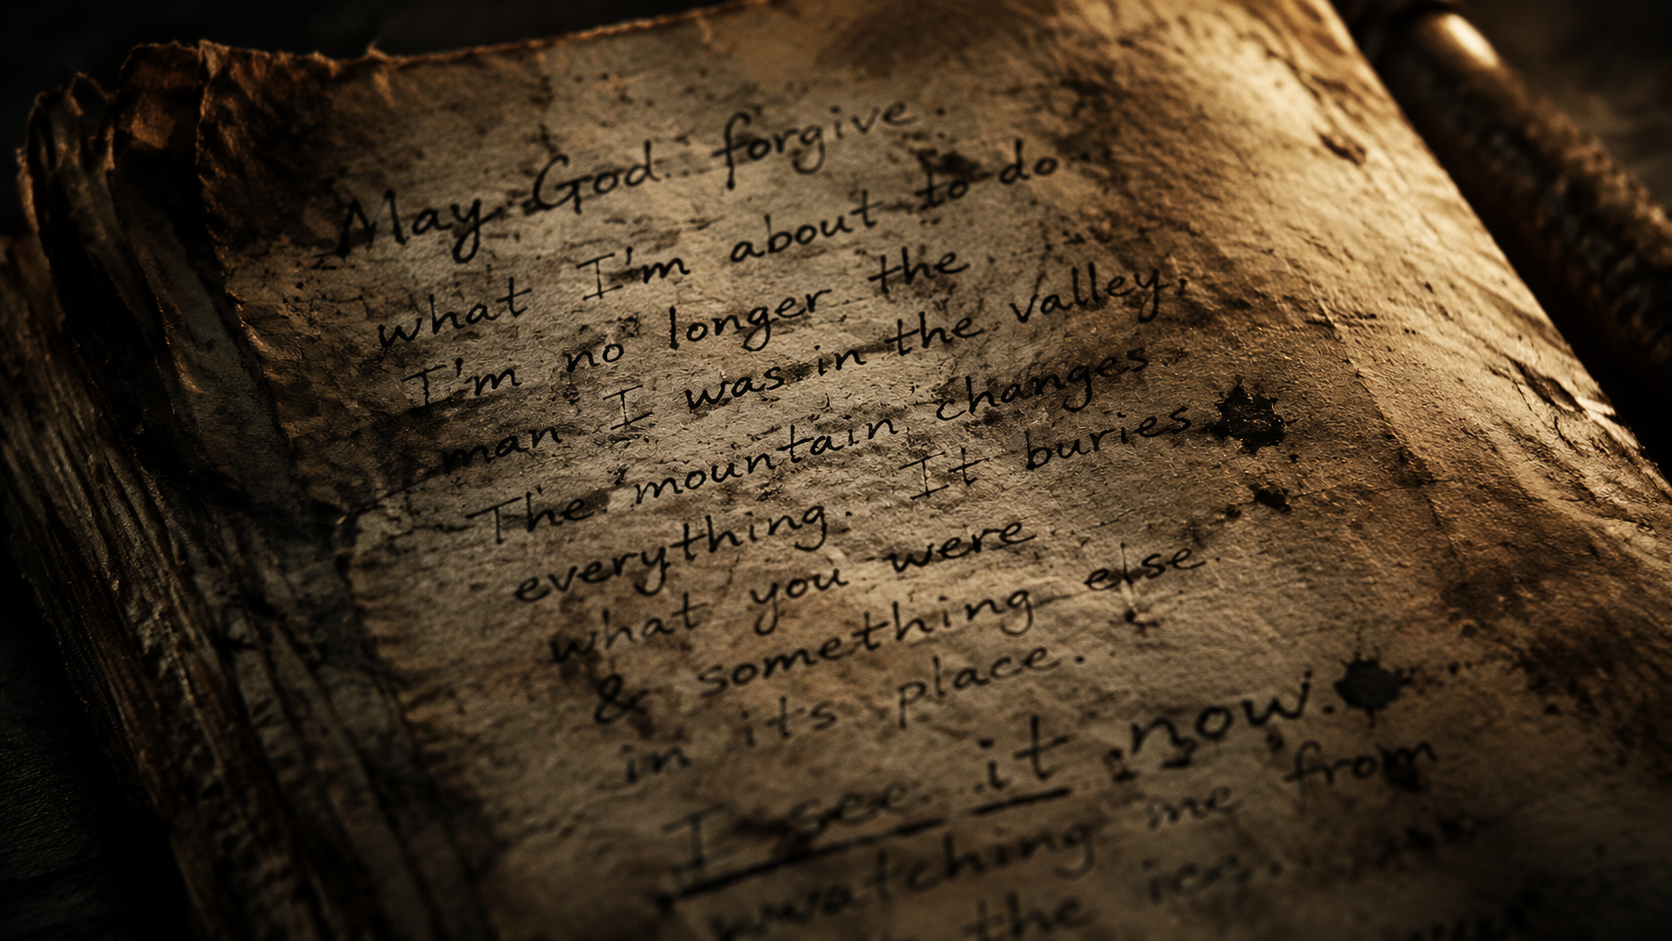 May God forgive.
what I'm about to do
I'm no longer the
man I was in the valley,
The mountain changes
everything. It buries
what you were
& something else
in its place.
I see it now.
watching me from
the ice.